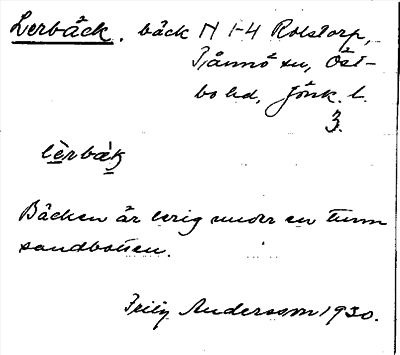 Lerbäck. bäck N 1-4 Rolstorp,
Tånnö sn, Öst-
bo hd, Jönk. l.
3.
lèrbàk
Bäcken är lerig under en tunn
sandbotten.
Frity Andersson 1930.